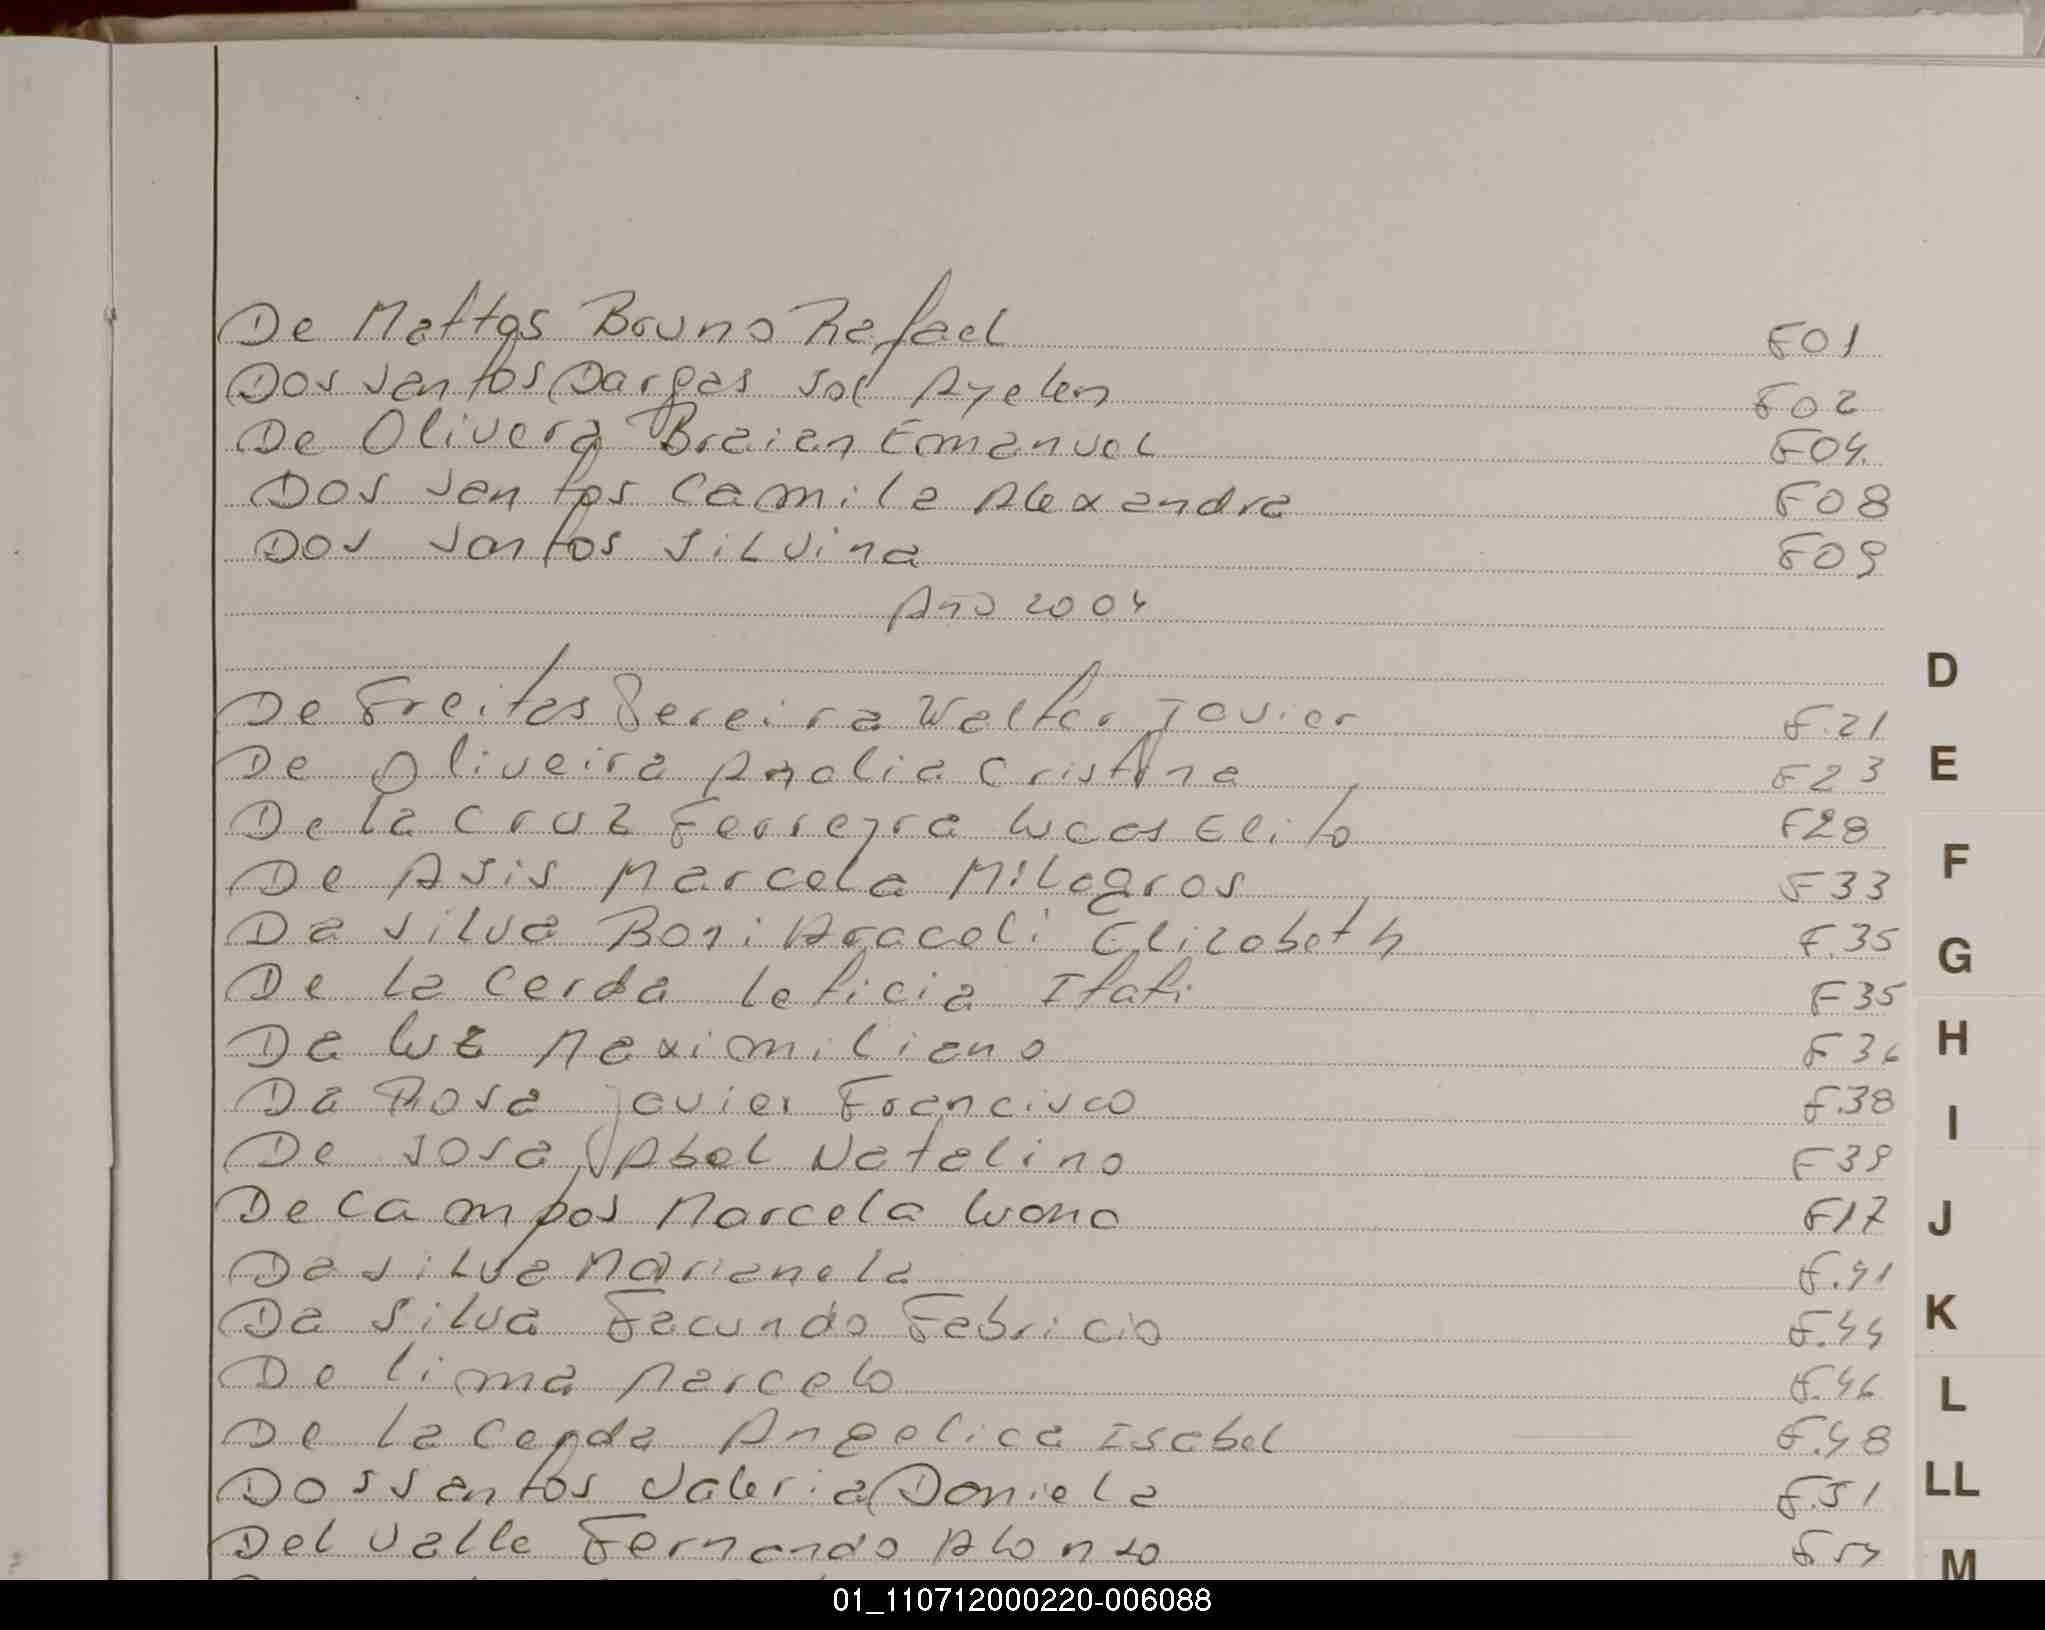 De Mattos Bruno Rafael F01
Dos Santos Dargas Sol Ayelen F02
De Olivera Braian Emanuel F04.
Dos Santos Camila Alexandra F08
Dos Santos Silvina F09
Año 2004
De Freitas Pereira Walter Javier F.21
D
De Oliveira Analia Cristina F23
E
De la Cruz Ferreyra Lucas Elito F28
F
De Asis Marcela Milagros F33
Da Silva Boni Araceli Elizabeth F.35
G
De la Cerda Leticia Itati F35
Da Luz Maximiliano F36
H
Da Rosa Javier Francisco F.38
I
De Sosa Abel Natalino F39
De Campos Marcela Luana F17
J
Da Silva Marianela F.41
Da Silva Facundo Fabricio F.44
K
De Lima Marcelo F.46
L
De la Cerda Angelica Isabel F.48
Dos Santos Valeria Daniela F.51
LL
Del Valle Fernando Alonzo F54
M
01_110712000220-006088